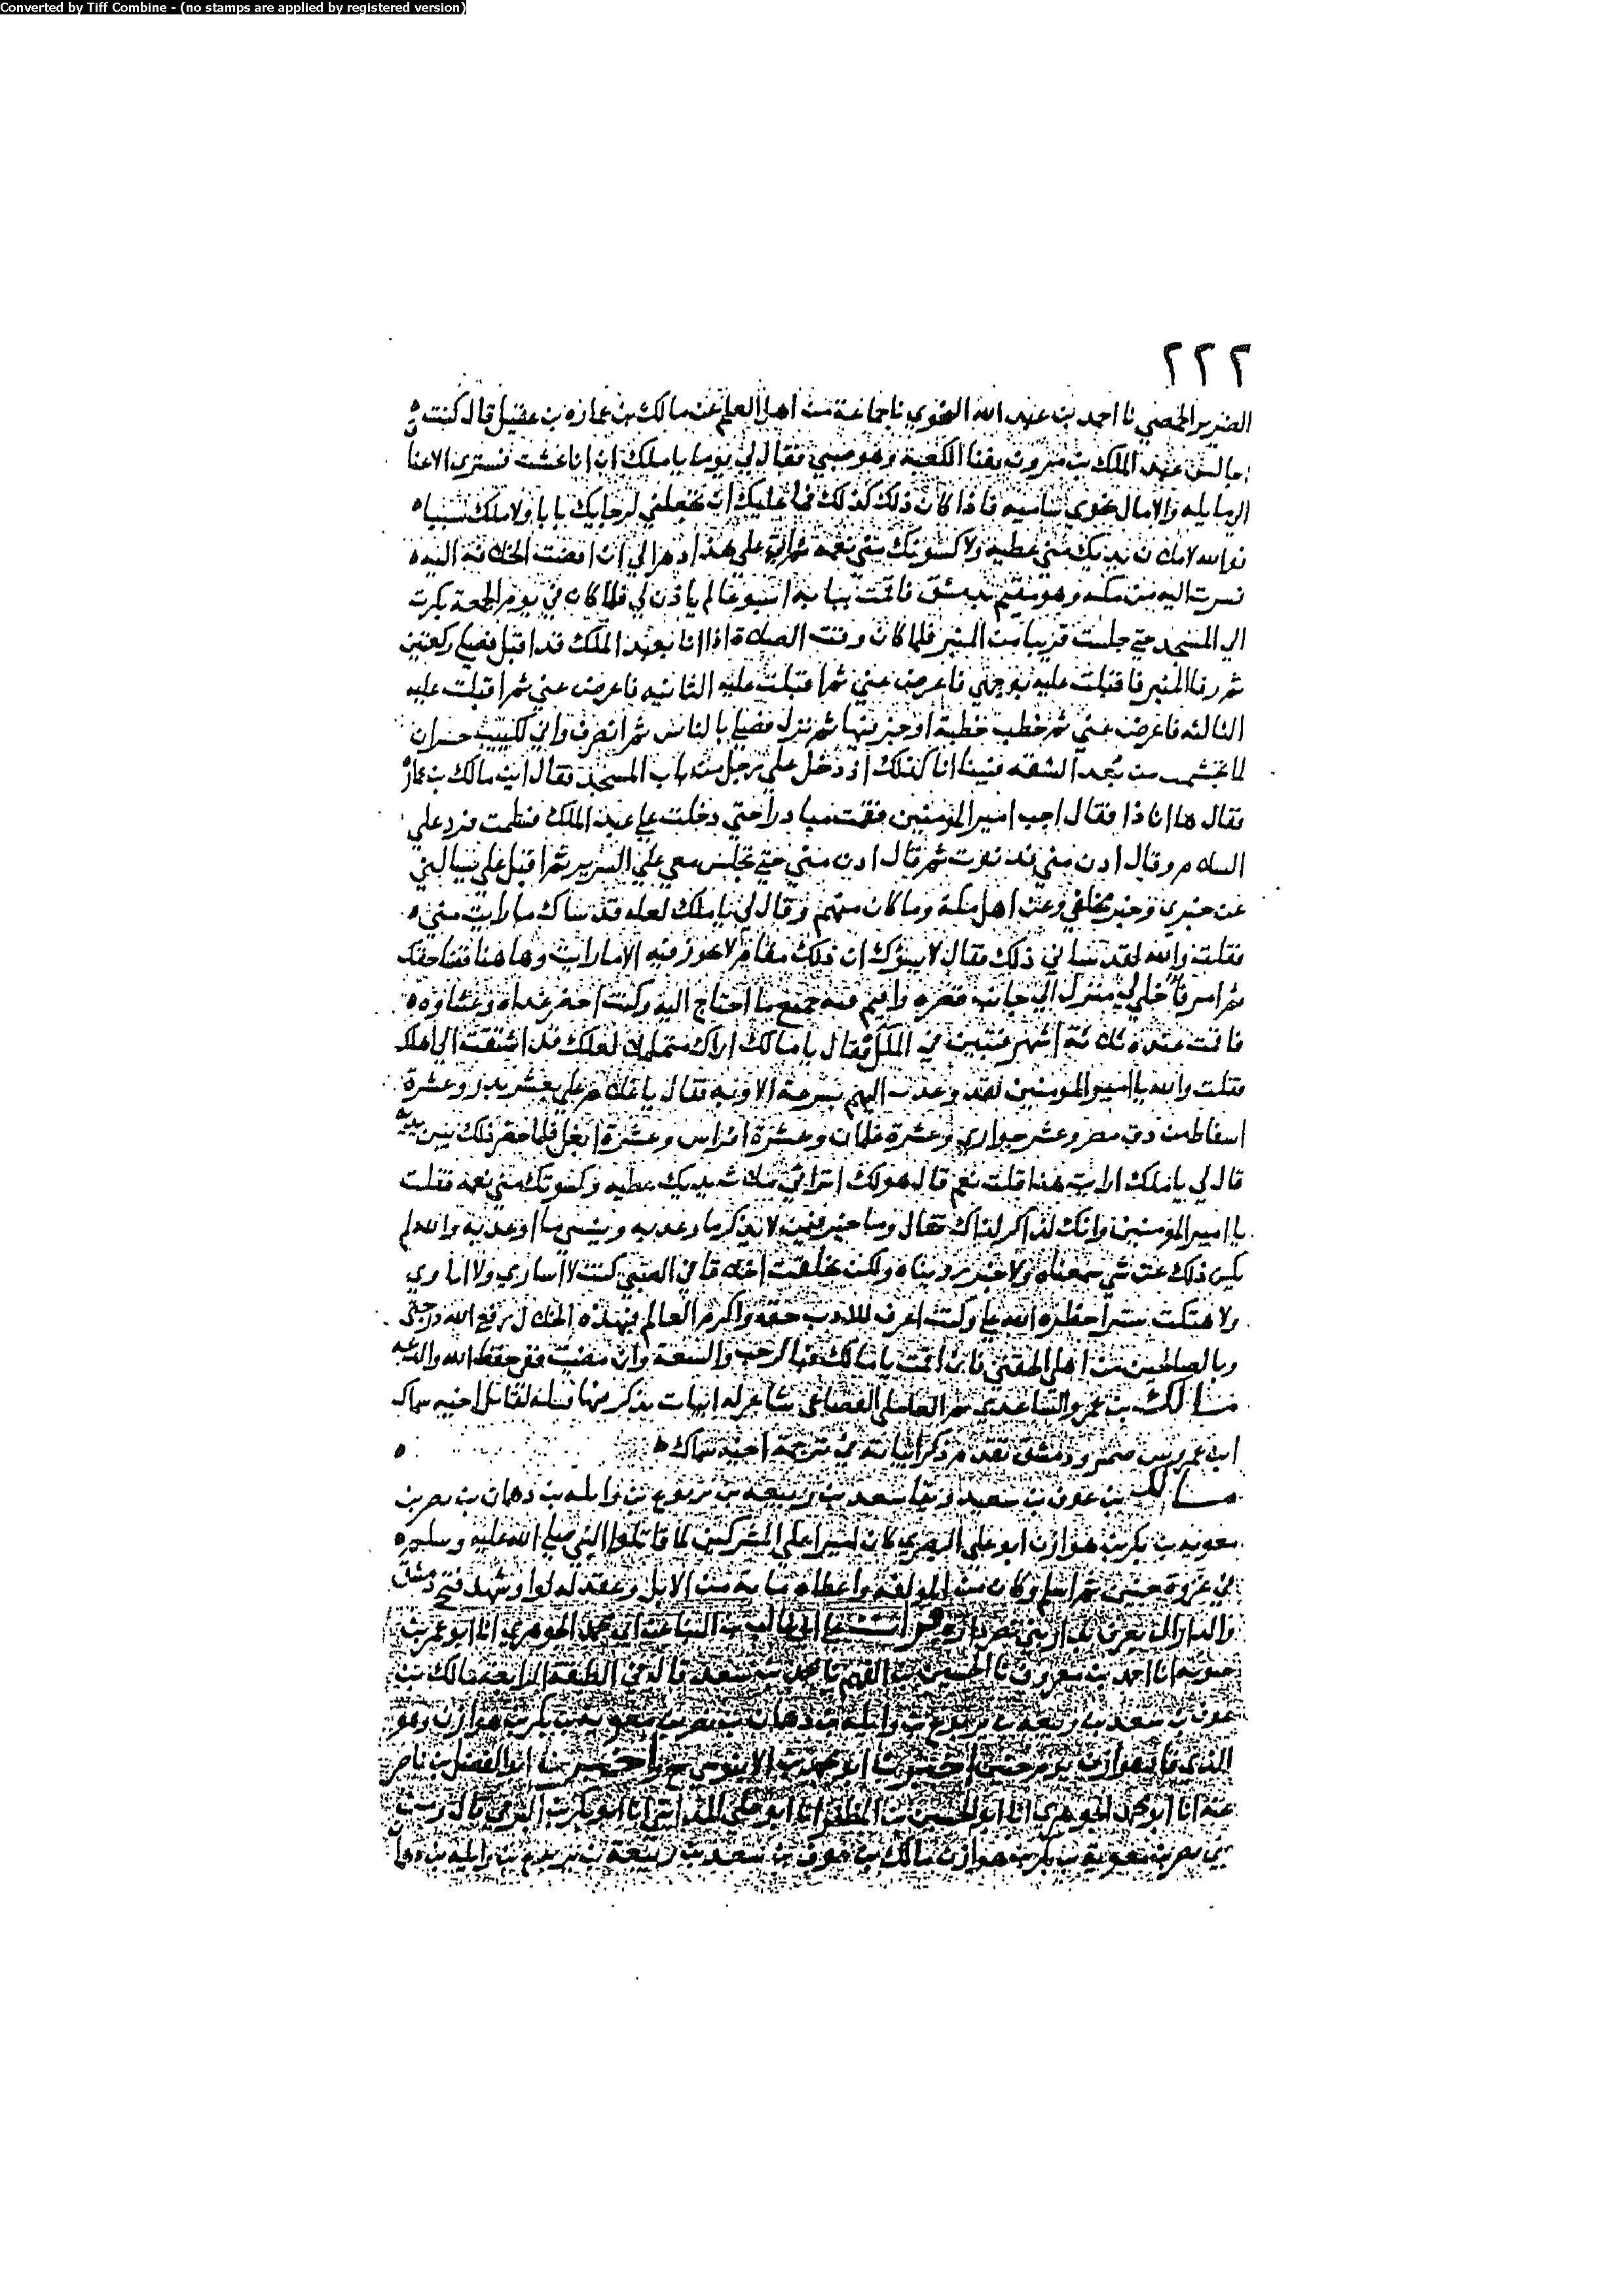 Converted by Tiff Combine - (no stamps are applied by registered version)
٢٢٢
الضرير الحمصي نا احمد بن عبد الله النحوي نا جماعة من اهل العلم عن مالك بن عماره بن عقيل قال كنت
اجالس عبد الملك بن مروان بفنا الكعبة وهو فقال لي يوما يا ملك ان انا عشت فسترى الاعنا
الي مايله والامال نحوي ساميه فاذا كان ذلك كذلك فما عليك ان تجعلني لرجايك بابا ولاملك سببا
فوالله لاملان يديك مني عطيه ولاكسونك مني نعمة ثم اتى على هذا دهر الي ان افضت الخلافة اليه
فسرت اليه من مكه وهو مقيم بدمشق فاقمت ببابه اسبوعا لم ياذن لي فلما كان في يوم الجمعة بكرت
الي المسجد حتى جلست قريبا من المنبر فلما كان وقت الصلاة اذا انا بعبد الملك قد اقبل فصلى ركعتين
ثم رقا المنبر فاقبلت عليه بوجهي فاعرض عني ثم اقبلت عليه الثانيه فاعرض عني ثم اقبلت عليه
الثالثه فاعرض عني ثم خطب خطبة اوجز فيها ثم نزل فصلى بالناس ثم انصرف واني لكئيب حزنان
لما من بعد الشقه فبينا انا كذلك اذ دخل علي رجل من باب المسجد فقال اين مالك بن عمارة
فقال ها انا ذا فقال اجب امير المؤمنين فقمت مبادرا حتى دخلت على عبد الملك فسلمت فرد علي
السلام وقال ادن مني فدنوت ثم قال ادن مني حتى تجلس معي على السرير ثم اقبل علي يسالني
عن خبري وخبر مخلفي وعن اهل مكة وما كان منهم وقال لي يا ملك لعله قد ساك ما رايت مني
فقلت والله لقد ساني ذلك فقال لا يسؤك ان ذلك مقام لا يجوز فيه الا ما رايت وهاهنا قضا حقك
ثم امر فاخلي لي منزل الي جانب قصره واقيم فيه جميع ما احتاج اليه وكنت احضر غداه وعشاوه
فاقمت عنده ثلاثة اشهر فقال يا مالك اراك متململا لعلك قد اشتقت الي اهلك
فقلت والله يا امير المومنين لقد وعدت اليهم بسرعة الاوبة فقال يا غلام علي بعشر بدر وعشرة
اسفاط من دق مصر وعشر جواري وعشرة غلمان وعشرة افراس وعشرة ابغل فلما حضر ذلك بين يديه
قال لي يا ملك ارايت هذا قلت نعم قال هولك اتراني ملات يديك عطيه وكسوتك مني نعمه فقلت
يا امير المؤمنين وانك لذاكر لذاك فقال وما خير فيمن لا يذكر ما وعد به وينسى ما اوعد به والله لم
يكن ذلك عن شي سمعناه ولا خبر رويناه ولكن تخلقت اخلاقا في الصبي كنت لا اساري ولا اماري
ولا هتكت سترا حظره الله علي وكنت اعرف للادب حقه واكرم العالم فبهذه الخلال رفع الله درجتي
وبالصالحين من اهلي الحقني فان اقمت يا مالك فبالرحب والسعة وان مضيت ففي حفظ الله والدعه
مالك بن عمرو الساعدي ثم العاملي القضاعي شاعر له ابيات يذكر فيها قتله لقاتل اخيه سماك
ابن عمرو بين حمص ودمشق تقدم ذكر ابياته في ترجمة اخيه سماك
مالك بن عوف بن سعيد ويقال سعد بن ربيعه بن يربوع بن واثله بن دهمان بن نصر بن
معويه بن بكر بن هوازن ابو علي النصري كان اميرا على المشركين لما قاتلوا النبي صلى الله عليه وسلم
في غزوة حنين ثم اسلم وكان من المولفة واعطاه ماية من الابل وعقد له لوا وشهد فتح دمشق
والدار التي تعرف بدار بني نصر داره قرات على ابي غالب بن البنا عن ابي محمد الجوهري انا ابو عمر بن
حيويه انا احمد بن معروف نا الحسين بن الفهم نا محمد بن سعد قال في الطبقة الرابعة مالك بن
عوف بن سعد بن ربيعه بن يربوع بن واثلة بن دهمان بن نصر بن معويه بن بكر بن هوازن وهو
الذي قاد هوازن يوم حنين اخبرنا ابو محمد بن الابنوسي ثم واخبرنا ابو الفضل بن ناصر
عنه انا ابو محمد الجوهري انا ابو الحسين بن المظفر انا ابو علي المدايني انا ابو بكر بن البرقي قال ومن
بني نصر بن معوية بن بكر بن هوازن مالك بن عوف بن سعد بن ربيعة بن يربوع بن واثله بن دهمان